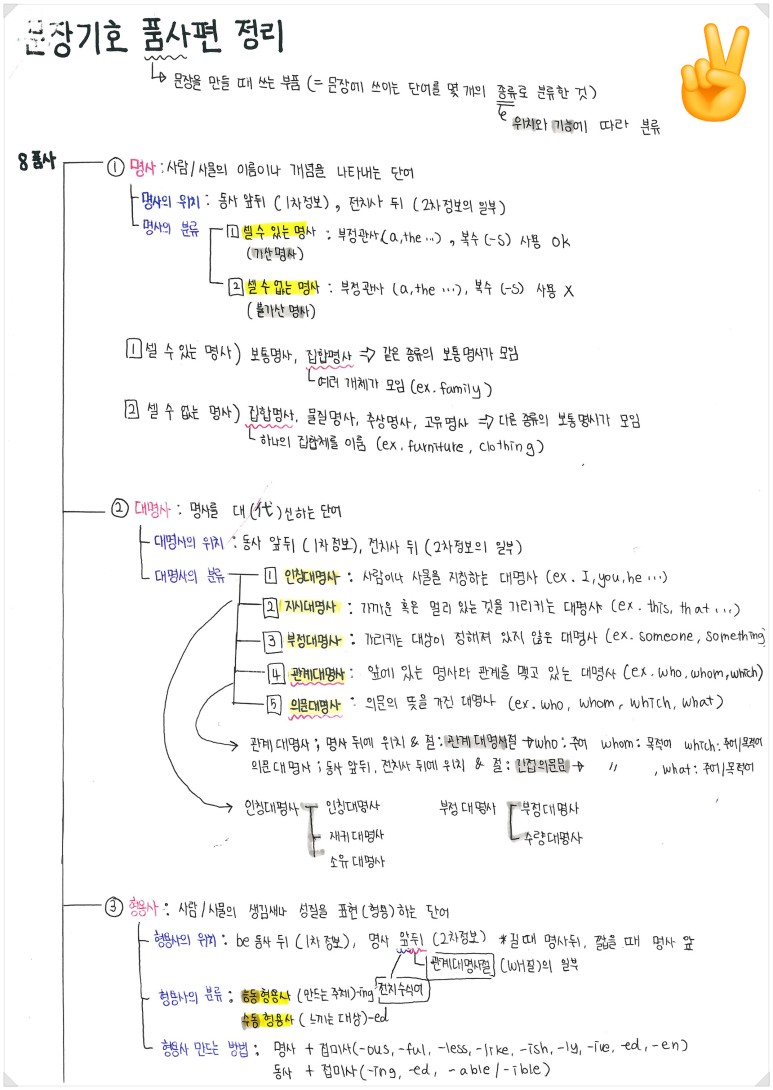 문장기호 품사편 정리
↳ 문장을 만들 때 쓰는 부품 (= 문장에 쓰이는 단어를 몇 개의 종류로 분류한 것)
위치와 기능에 따라 분류
8품사
① 명사 : 사람/사물의 이름이나 개념을 나타내는 단어
명사의 위치 : 동사 앞뒤 (1차정보), 전치사 뒤 (2차정보의 일부)
명사의 분류
1 셀 수 있는 명사 : 부정관사(a, the …), 복수 (-s) 사용 ok
(가산명사)
2 셀 수 없는 명사 : 부정관사 (a, the …), 복수 (-s) 사용 X
(불가산 명사)
1 셀 수 있는 명사) 보통명사, 집합명사 ⇒ 같은 종류의 보통명사가 모임
여러 개체가 모임 (ex. family)
2 셀 수 없는 명사) 집합명사, 물질명사, 추상명사, 고유명사 ⇒ 다른 종류의 보통명사가 모임
하나의 집합체를 이룸 (ex. furniture, clothing)
② 대명사 : 명사를 대(代)신하는 단어
대명사의 위치 : 동사 앞뒤 (1차정보), 전치사 뒤 (2차정보의 일부)
대명사의 분류
1 인칭대명사 : 사람이나 사물을 지칭하는 대명사 (ex. I, you, he …)
2 지시대명사 : 가까운 혹은 멀리 있는 것을 가리키는 대명사 (ex. this, that …)
3 부정대명사 : 가리키는 대상이 정해져 있지 않은 대명사 (ex. someone, something)
4 관계대명사 : 앞에 있는 명사와 관계를 맺고 있는 대명사 (ex. who, whom, which)
5 의문대명사 : 의문의 뜻을 가진 대명사 (ex. who, whom, which, what)
관계대명사 ; 명사 뒤에 위치 & 절 : 관계대명사절 → who : 주어 whom : 목적어 which : 주어/목적어
의문대명사 ; 동사 앞뒤, 전치사 뒤에 위치 & 절 : 간접의문문 → 〃 , what : 주어/목적어
인칭대명사 인칭대명사 부정대명사 부정대명사
재귀대명사 수량대명사
소유대명사
③ 형용사 : 사람/사물의 생김새나 성질을 표현(형용)하는 단어
형용사의 위치 : be 동사 뒤 (1차정보), 명사 앞뒤 (2차정보) *길 때 명사뒤, 짧을 때 명사 앞
관계대명사절 (WH절)의 일부
형용사의 분류 : 능동형용사 (만드는 주체)-ing 전치수식어
수동형용사 (느끼는 대상)-ed
형용사 만드는 방법 : 명사 + 접미사(-ous, -ful, -less, -like, -ish, -ly, -ive, -ed, -en)
동사 + 접미사(-ing, -ed, -able/-ible)